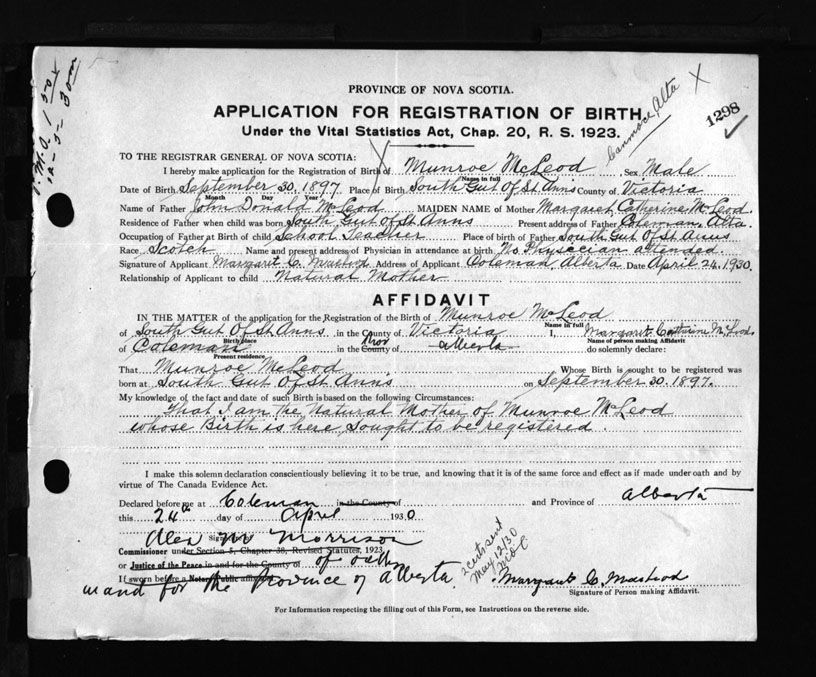 PROVINCE OF NOVA SCOTIA.
Canmore Alta X
APPLICATION FOR REGISTRATION OF BIRTH
1298
Under the Vital Statistics Act, Chap. 20, R. S. 1923.
TO THE REGISTRAR GENERAL OF NOVA SCOTIA:
I hereby make application for the Registration of Birth of Munroe McLeod Sex Male
Name in full
Date of Birth September 30, 1897 Place of Birth South Gut Of St Anns County of Victoria
Month Day Year
Name of Father John Donald McLeod MAIDEN NAME of Mother Margaret Catherine McLeod
Residence of Father when child was born South Gut Of St Anns Present address of Father Coleman, Alta.
Occupation of Father at Birth of child School Teacher Place of birth of Father South Gut Of St Anns
Race Scotch Name and present address of Physician in attendance at birth No Physician attended
Signature of Applicant Margaret C. MacLeod Address of Applicant Coleman, Alberta Date April 24, 1930.
Relationship of Applicant to child Natural Mother
AFFIDAVIT
IN THE MATTER of the application for the Registration of the Birth of Munroe McLeod
Name in full
of South Gut Of St Anns in the County of Victoria I, Margaret Catherine McLeod
Birth place Name of person making Affidavit
of Coleman in the County of Prov Alberta do solemnly declare:
Present residence
That Munroe McLeod Whose Birth is sought to be registered was
born at South Gut Of St Anns on September 30, 1897.
My knowledge of the fact and date of such Birth is based on the following Circumstances:
That I am the Natural Mother of Munroe McLeod
whose Birth is here sought to be registered.
I make this solemn declaration conscientiously believing it to be true, and knowing that it is of the same force and effect as if made under oath and by
virtue of The Canada Evidence Act.
Declared before me at Coleman in the County of and Province of Alberta
this 24th day of April 1930
Alex M Morrison
Commissioner under Section 5, Chapter 38, Revised Statutes, 1923
or Justice of the Peace in and for the County of of oaths
If sworn before a Notary Public affix
in and for the Province of Alberta
2 certs sent
May 12/30
Margaret C. MacLeod
Signature of Person making Affidavit.
For Information respecting the filling out of this Form, see Instructions on the reverse side.